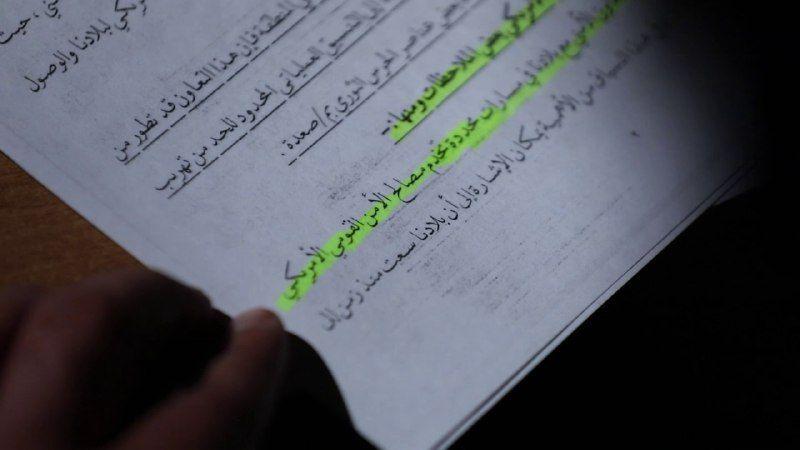 ني ، حيث
ريكي لبلادنا والوصول
المنطقة فإن هذا التعاون قد تطور من
إلى التنسيق العملياتي المحدود للحد من تهريب
عض عناصر الحرس الثوري بم/صعدة .
بعض الملاحظات ومنها:-
مع بلادنا في مسارات محددة تخدم مصالح الأمن القومي الأمريكي
هذا السياق من الأهمية بمكان الإشارة إلى أن بلادنا سعت منذ زمن إلى